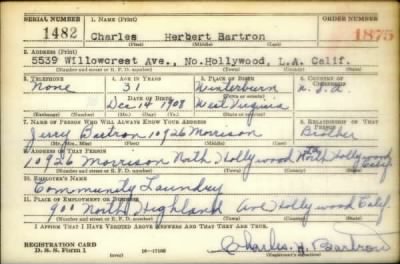 SERIAL NUMBER 1. NAME (Print) ORDER NUMBER
1482 Charles Herbert Bartron 1875
(First) (Middle) (Last)
2. ADDRESS (Print)
5539 Willowcrest Ave., No.Hollywood, L.A. Calif.
(Number and street or R. F. D. number) (Town) (County) (State)
3. TELEPHONE 4. AGE IN YEARS 5. PLACE OF BIRTH 6. COUNTRY OF CITIZENSHIP
None 31 Winterburn U.S.A.
DATE OF BIRTH (Town or county)
Dec 14 1908 West Virginia
(Exchange) (Number) (Mo.) (Day) (Yr.) (State or country)
7. NAME OF PERSON WHO WILL ALWAYS KNOW YOUR ADDRESS 8. RELATIONSHIP OF THAT PERSON
Jerry Bartron 10926 Morrison Brother
(Mr., Mrs., Miss) (First) (Middle) (Last)
9. ADDRESS OF THAT PERSON
10926 Morrison North Hollywood North Hollywood Calif
(Number and street or R. F. D. number) (Town) (County) (State)
10. EMPLOYER'S NAME
Community Laundry
11. PLACE OF EMPLOYMENT OR BUSINESS
900 North Highland Ave Hollywood Calif.
(Number and street or R. F. D. number) (Town) (County) (State)
I AFFIRM THAT I HAVE VERIFIED ABOVE ANSWERS AND THAT THEY ARE TRUE.
REGISTRATION CARD
D. S. S. Form 1 16-17105 Charles H. Bartron